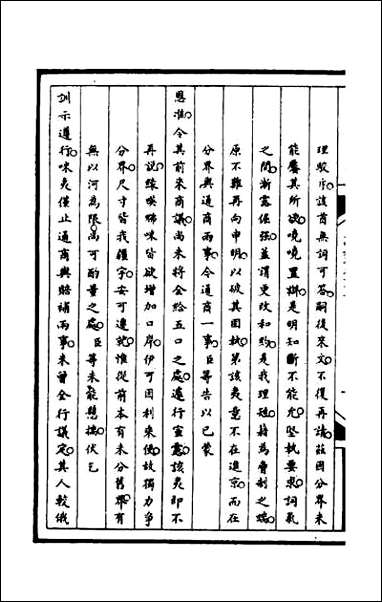 理駁斥該酋無詞可答嗣後來文不復再請茲因分界未
能饜其所欲嘵嘵置辯是明知斷不能允堅執要求詞氣
之間漸露倔强並謂更改和約是我理短藉為脅制之端
原不難再向申明以破其固執第該夷意不在進京而在
分界與通商兩事今通商一事臣等告以已蒙
恩准令其前來商議尚未將全給五口之處遽行宣露該夷即不
再說緣㗸咈咪皆欲增加口岸伊可因利乘便故獨力爭
分界尺寸皆我疆宇安可遷就惟從前本有未分舊界有
無以河為限尚可酌量之處臣等未能懸揣伏乞
訓示遵行咪夷僅止通商與賠補兩事未曾全行議定其人較俄